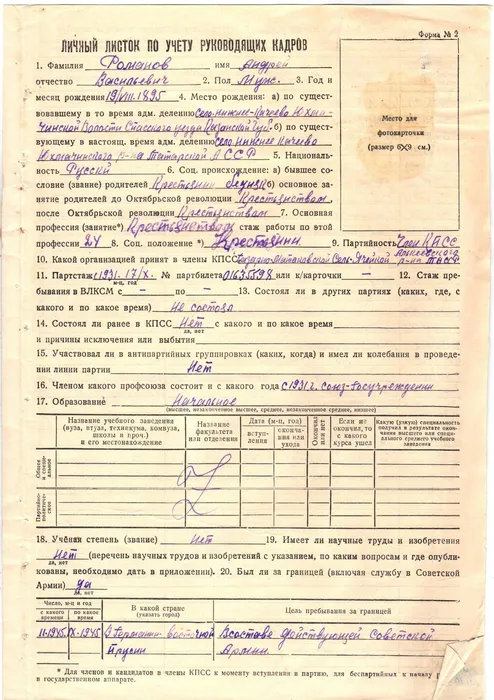 Форма № 2
ЛИЧНЫЙ ЛИСТОК ПО УЧЕТУ РУКОВОДЯЩИХ КАДРОВ
1. Фамилия Романов имя Андрей
отчество Васильевич 2. Пол Муж. 3. Год и
месяц рождения 19/VIII.1895 4. Место рождения: а) по сущест-
вовавшему в то время адм. делению Село нижнее-Качеево Юхма-
чинской Волости Спасского уезда Казанской Губ. б) по сущест-
вующему в настоящ. время адм. делению село нижнее Качеево
Юхмачинского р-на Татарской АССР 5. Националь-
ность Русский 6. Соц. происхождение: а) бывшее со-
словие (звание) родителей Крестьяни б) основное за-
нятие родителей до Октябрьской революции Крестьянствам
после Октябрьской революции Крестьянствам 7. Основная
профессия (занятие*) Крестьянствам стаж работы по этой
профессии 24 8. Соц. положение *) Крестьянин 9. Партийность Член КПСС
10. Какой организацией принят в члены КПСС Сель. Ячейкой р-на ТАССР
11. Партстаж с 1931. IX. № партбилета 01635898 или к/карточки – 12. Стаж пре-
м-ц, год
бывания в ВЛКСМ с – по – 13. Состоял ли в других партиях (каких, где, с
какого и по какое время) Не состоял
14. Состоял ли ранее в КПСС Нет с какого и по какое время
да, нет
и причины исключения или выбытия
15. Участвовал ли в антипартийных группировках (каких, когда) и имел ли колебания в проведе-
нии линии партии Нет
16. Членом какого профсоюза состоит и с какого года с 1931 г. Союз-Госучреждении
17. Образование Начальное
(высшее, незаконченное высшее, среднее, незаконченное среднее, низшее)
Название учебного заведения (вуза, втуза, техникума, комвуза, школы и проч.) и его местонахождение
Название факультета или отделения
Дата (м-ц, год)
вступления
окончания или ухода
Окончил или нет
Если не окончил, то с какого курса ушел
Какую (узкую) специальность получил в результате окончания высшего или специального среднего учебного заведения
Общее и специальное
Партийно-политическое
18. Ученая степень (звание) Нет 19. Имеет ли научные труды и изобретения
Нет (перечень научных трудов и изобретений с указанием, по каким вопросам и где опубли-
да, нет
кованы, необходимо дать в приложении). 20. Был ли за границей (включая службу в Советской
Армии) да
да, нет
Число, м-ц и год
с какого времени
по какое время
В какой стране (указать город)
Цель пребывания за границей
II-1945 IX-1945 В Германии восточной В составе действующей Советской
Прусии Армии.
* Для членов и кандидатов в члены КПСС к моменту вступления в партию, для беспартийных к началу
в государственном аппарате.
Место для
фотокарточки
(размер 6×9 см.)